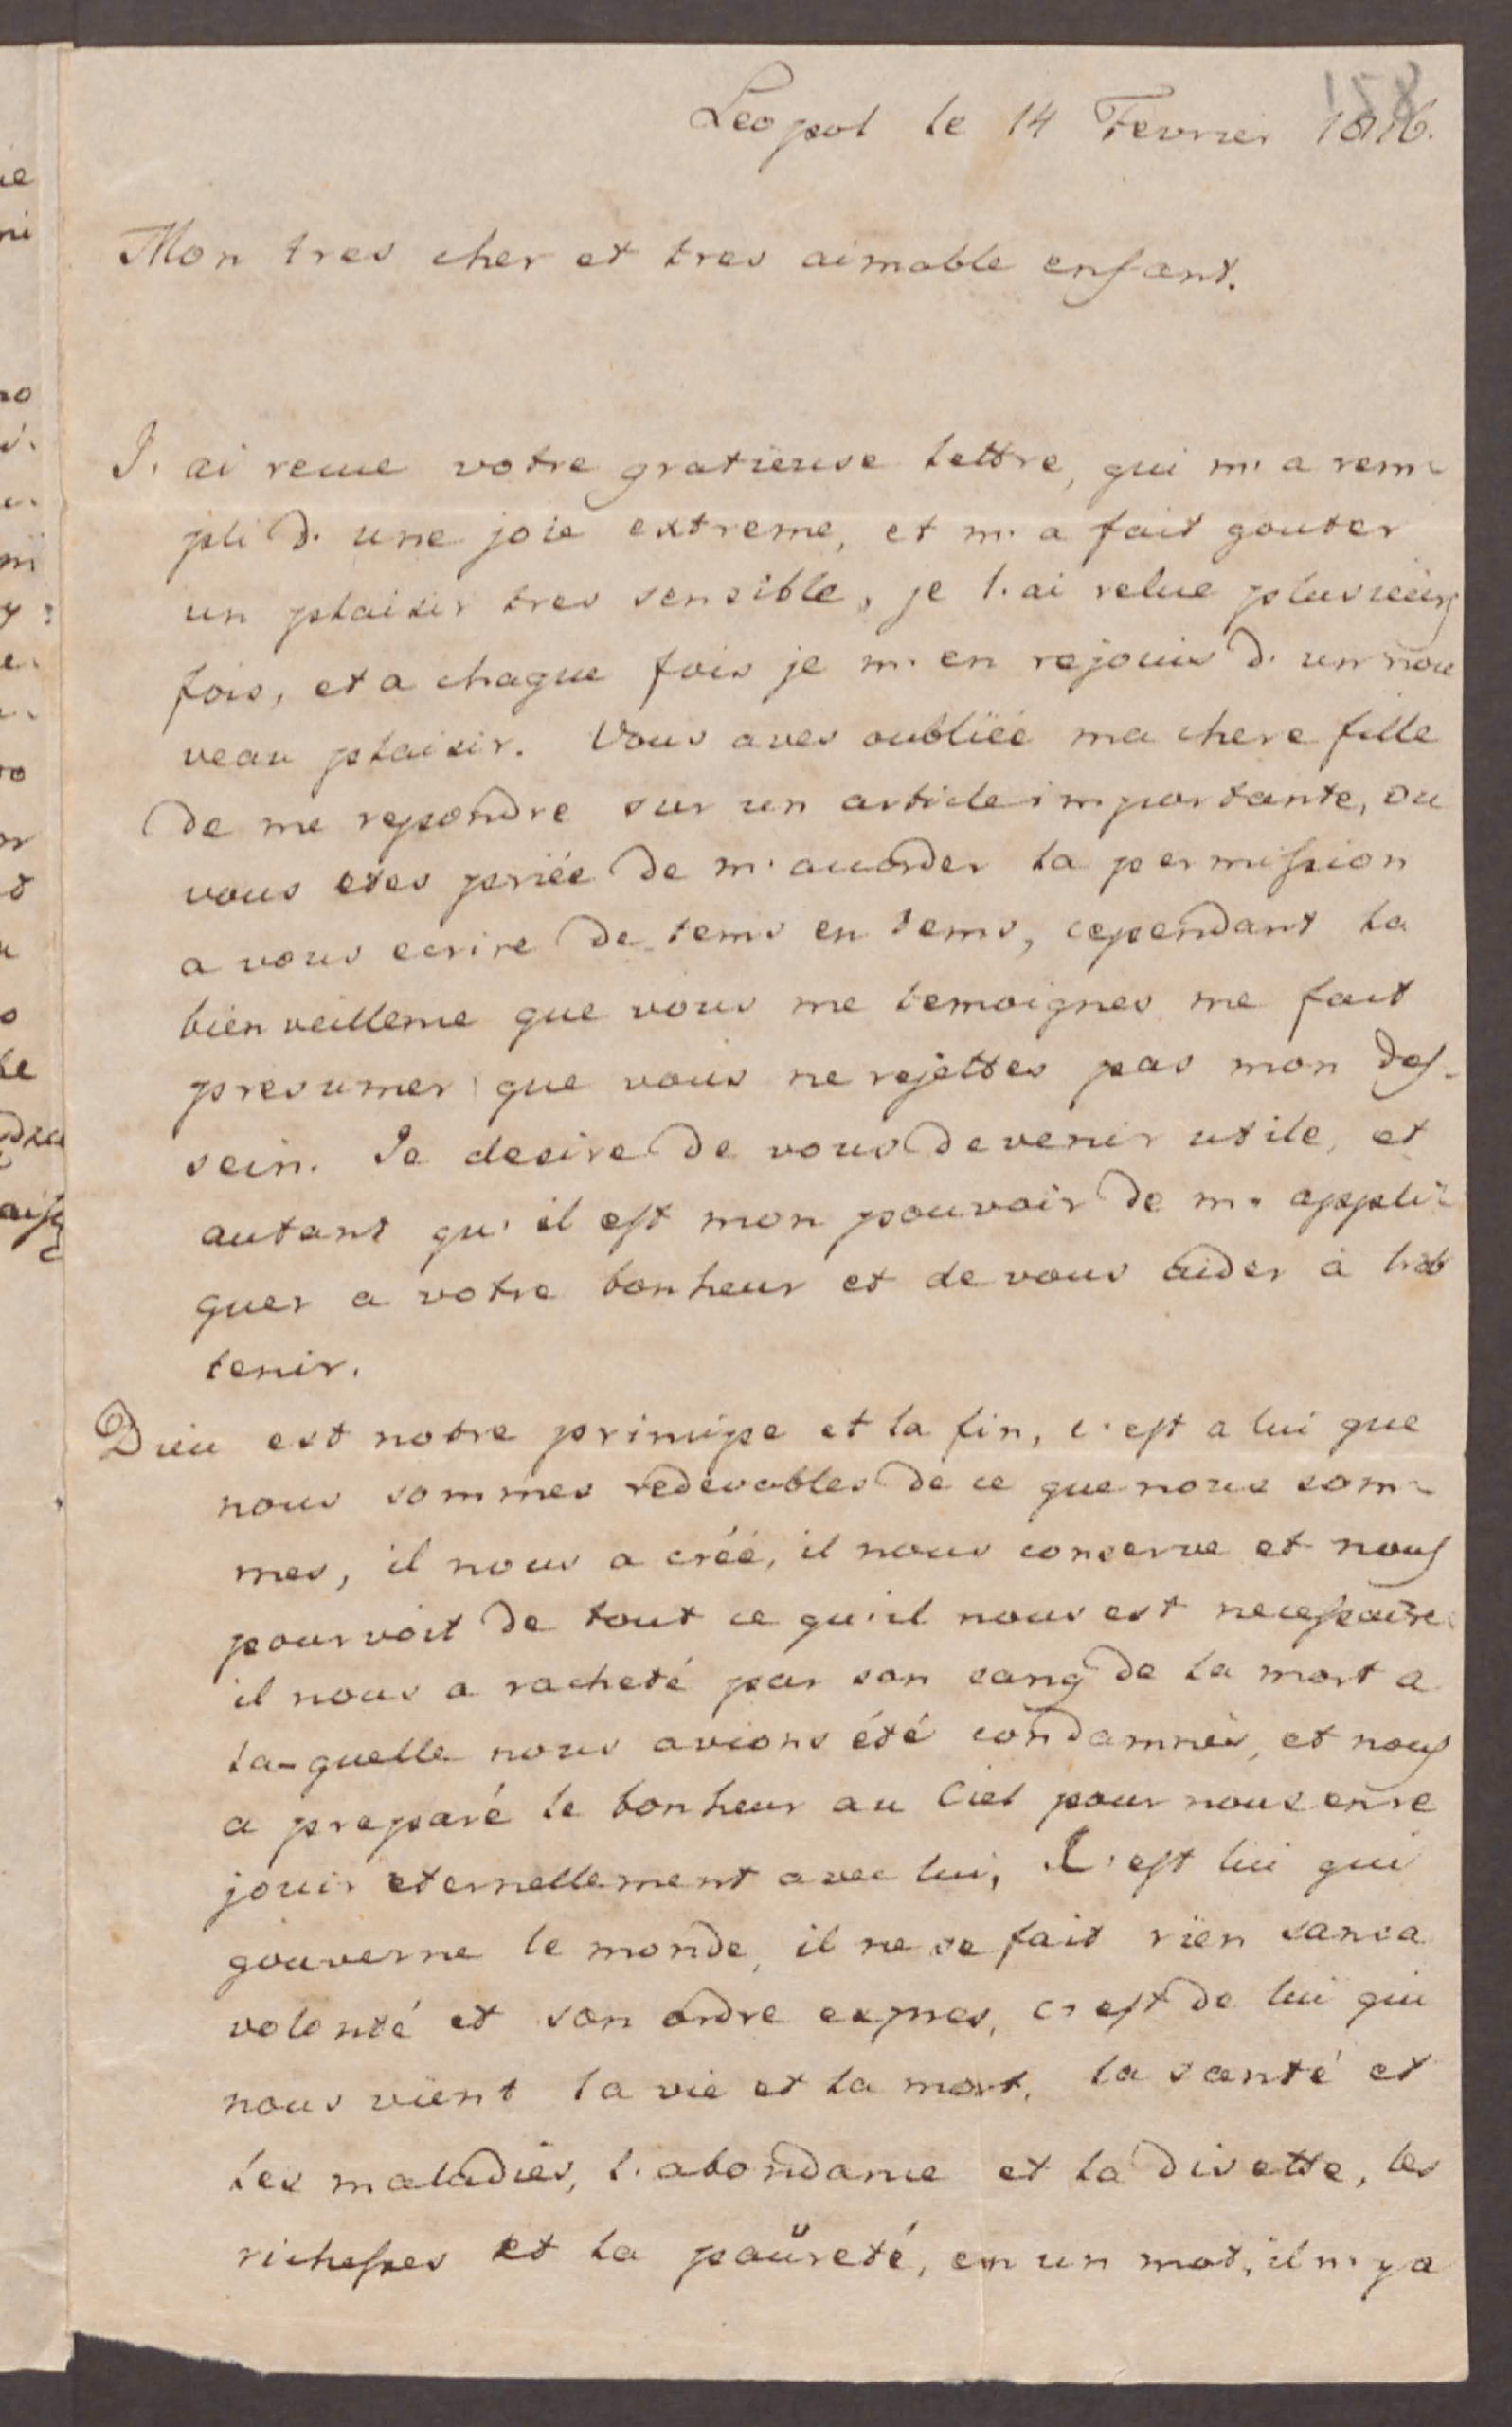 158
Leopol le 14 Fevrier 1816.
Mon tres cher et tres aimable enfant.
J. ai recue votre gratieuse lettre, qui m. a rem-
pli d. une joie extreme, et m. a fait gouter
un plaisir tres sensible, je l. ai relue plusieurs
fois, et a chaque fois je m. en rejouis d. un nou
veau plaisir. Vous aves oubliëé ma chere fille
de me repondre sur un article importante, ou
vous etes priée de m. accorder la permission
a vous ecrire de tems en tems, cependant la
bienveillence que vous me temoignes me fait
presumer que vous ne rejettes pas mon des-
sein. Je desire de vous devenir utile, et
autant qu' il est mon pouvoir de m. appli-
quer a votre bonheur et de vous aider à l'ob
tenir.
Dieu est notre principe et la fin, c'est a lui que
nous sommes redevables de ce que nous som-
mes, il nous a créé, il nous conserve et nous
pourvoit de tout ce qu'il nous est necessaire.
il nous a racheté par son sang de la mort a
la-quelle nous avions été condamnés, et nous
a preparé le bonheur au Ciel pour nous en re
jouir eternellement avec lui, C'est lui qui
gouverne le monde, il ne se fait rien sans a
volonté et son ordre expres, c'est de lui qui
nous vient la vie et la mort, la santé et
les maladies, l. abondance et la disette, les
richesses et la paŭreté, en un mot, il n. y a